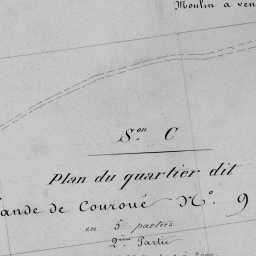 Moulin a ven
Son C
Plan du quartier dit
ande de Couroué No. 9
en 5 parties
2ème Partie